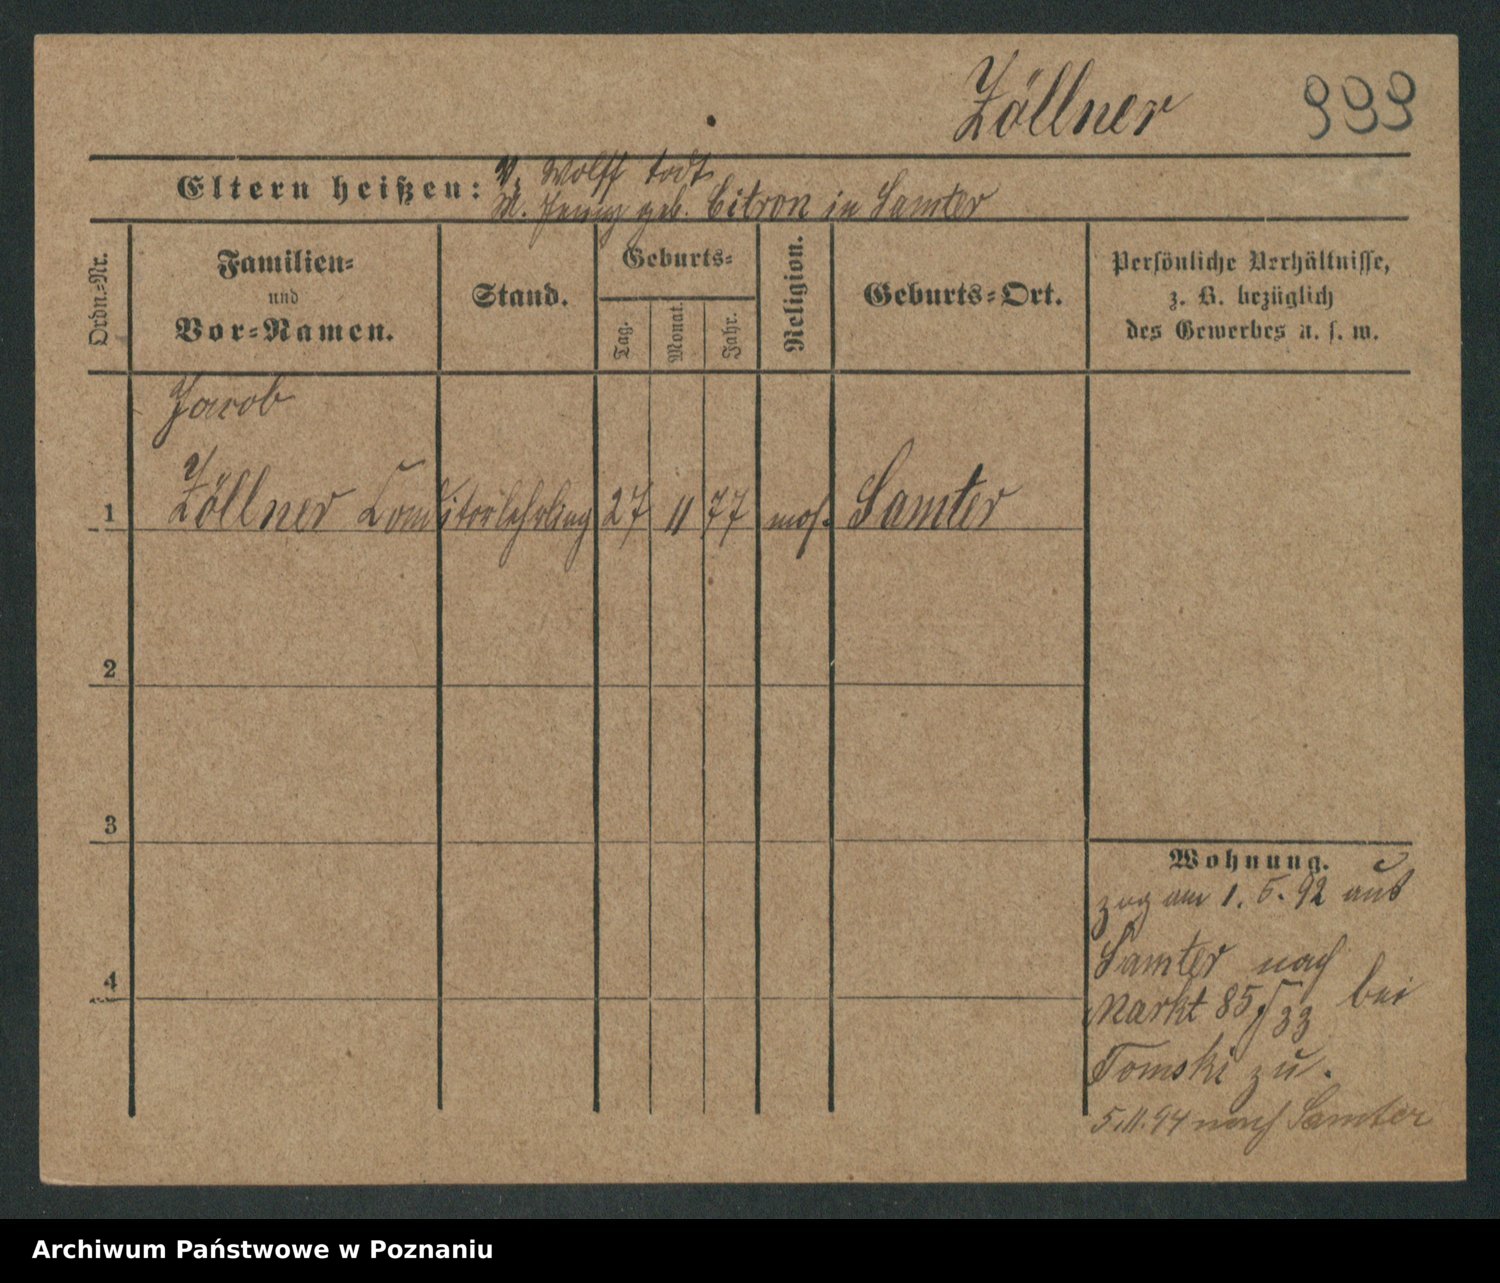 Zöllner 999
Eltern heißen: V. Wolff todt
M. Jenny geb. Citron in Samter
Ordn.-Nr.
Familien-
und
Vor-Namen.
Stand.
Geburts-
Tag.
Monat.
Jahr.
Religion.
Geburts-Ort.
Persönliche Verhältnisse,
z. B. bezüglich
des Gewerbes u. s. w.
Jacob
1 Zöllner Conditorlehrling 27 11 77 mos. Samter
2
3
4
Wohnung.
zog am 1. 5. 92 aus
Samter nach
Markt 85 bei
Tomski zu.
5.11.94 nach Samter
Archiwum Państwowe w Poznaniu